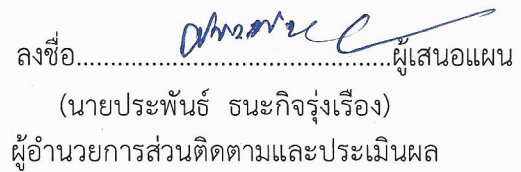 ลงชื่อ..................................................ผู้เสนอแผน
(นายประพันธ์ ธนะกิจรุ่งเรือง)
ผู้อำนวยการส่วนติดตามและประเมินผล